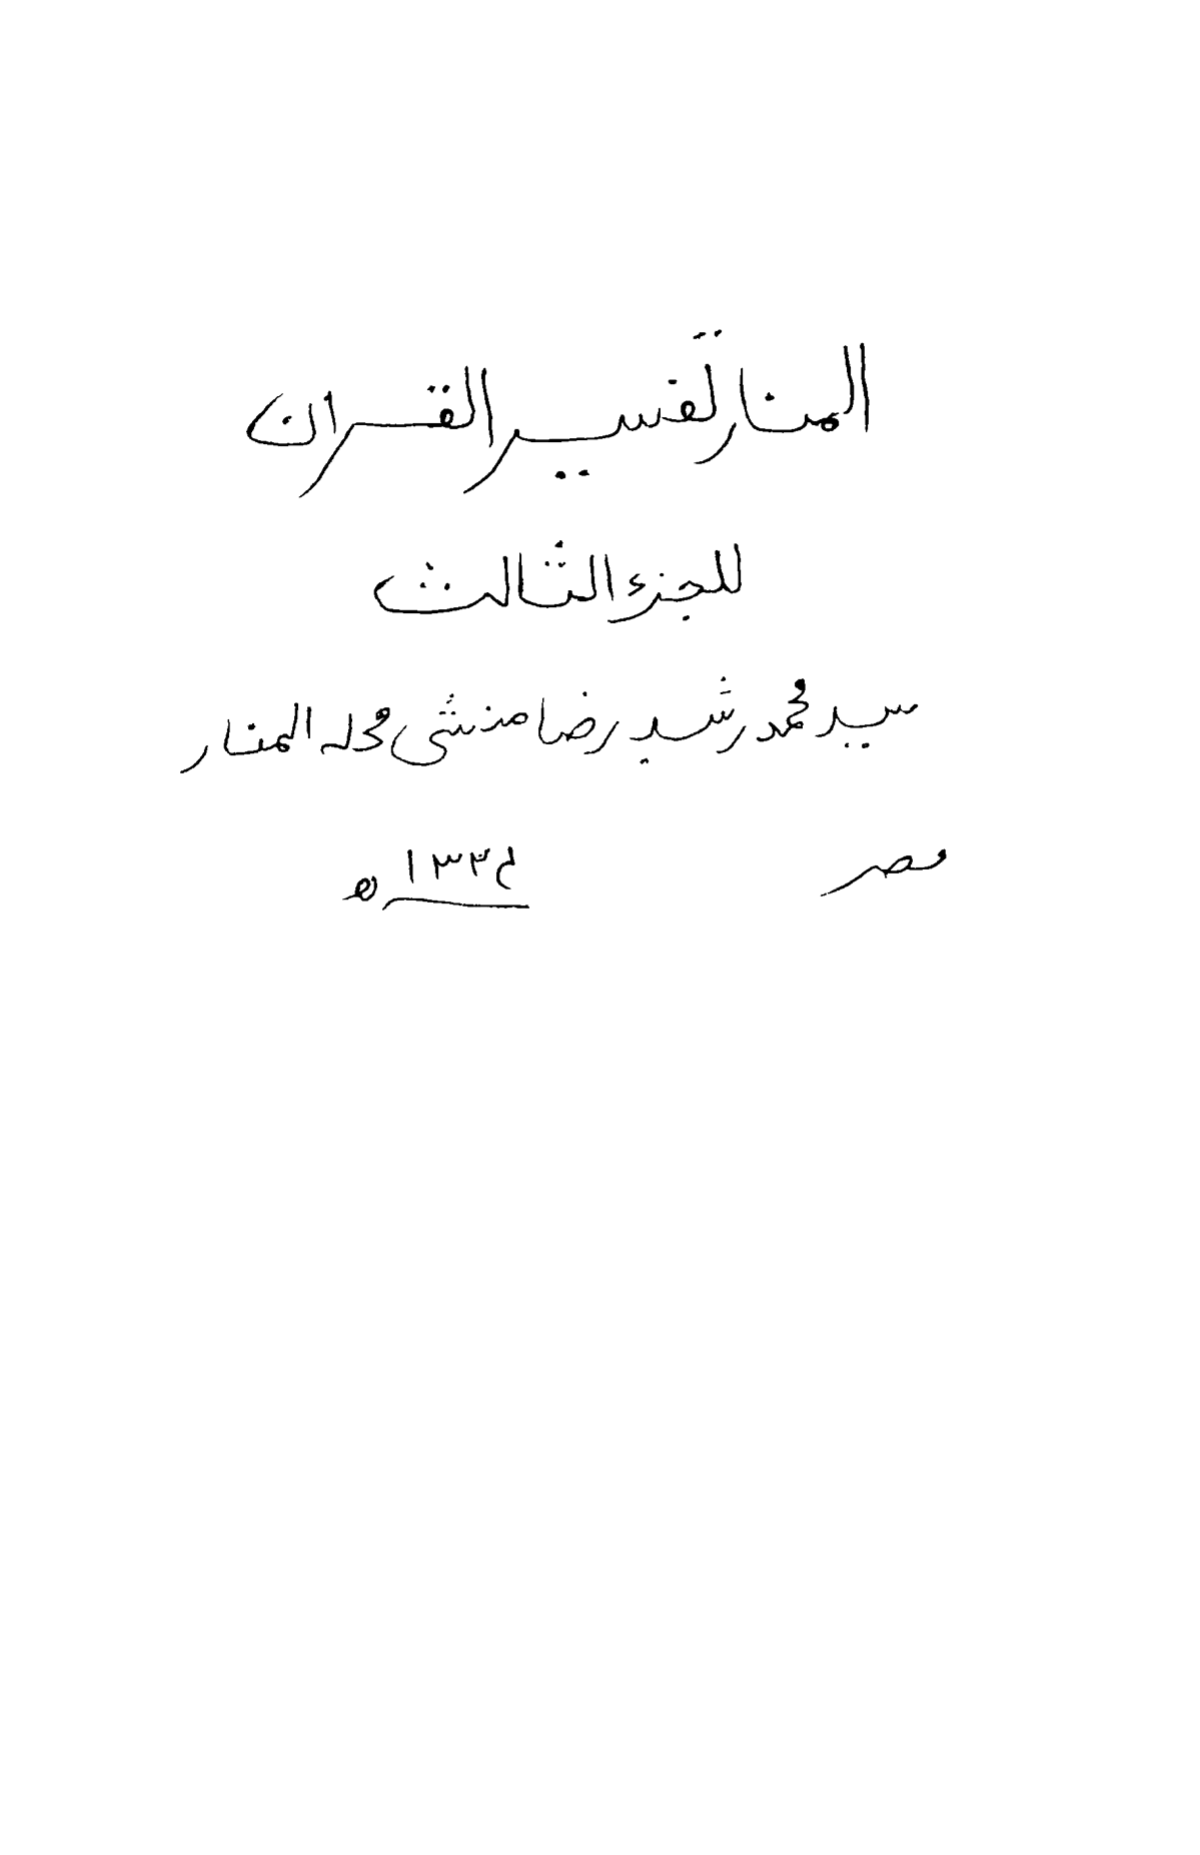 المنار لتفسير القران
للجزء الثالث
سيد محمد رشيد رضا منشى مجله المنار
مصر ١٣٣٤ ه